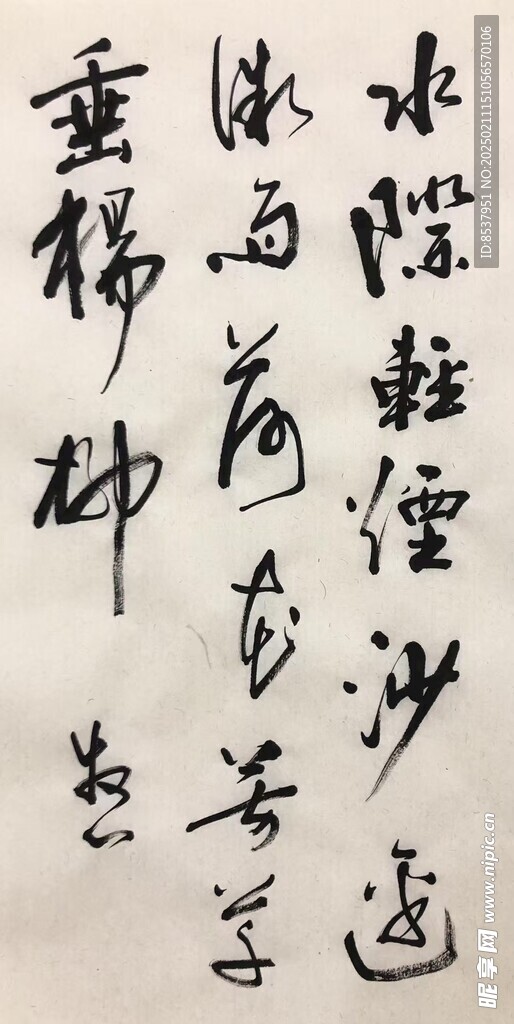 水際輕煙沙邊
微雨荷花芳草
垂楊柳
ID:8537951 NO:20250211151056570106
昵享网 www.nipic.cn